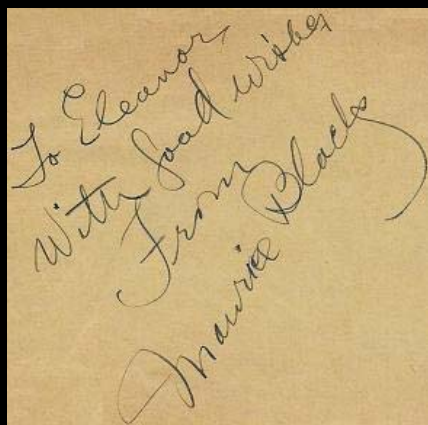 To Eleanor
With Good wishes
From
Maurice Black